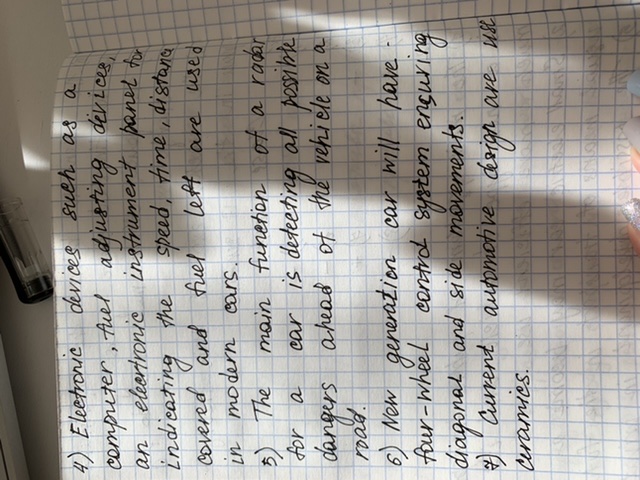 4) Electronic devices such as a
computer, fuel adjusting devices,
an electronic instrument panel for
indicating the speed, time, distanc
covered and fuel left are used
in modern cars.
5) The main function of a radar
for a car is detecting all possible
dangers ahead of the vehicle on a
road.
6) New generation car will have -
four-wheel control system enquring
diagonal and side movements.
7) Current automotive design are use
ceramics.